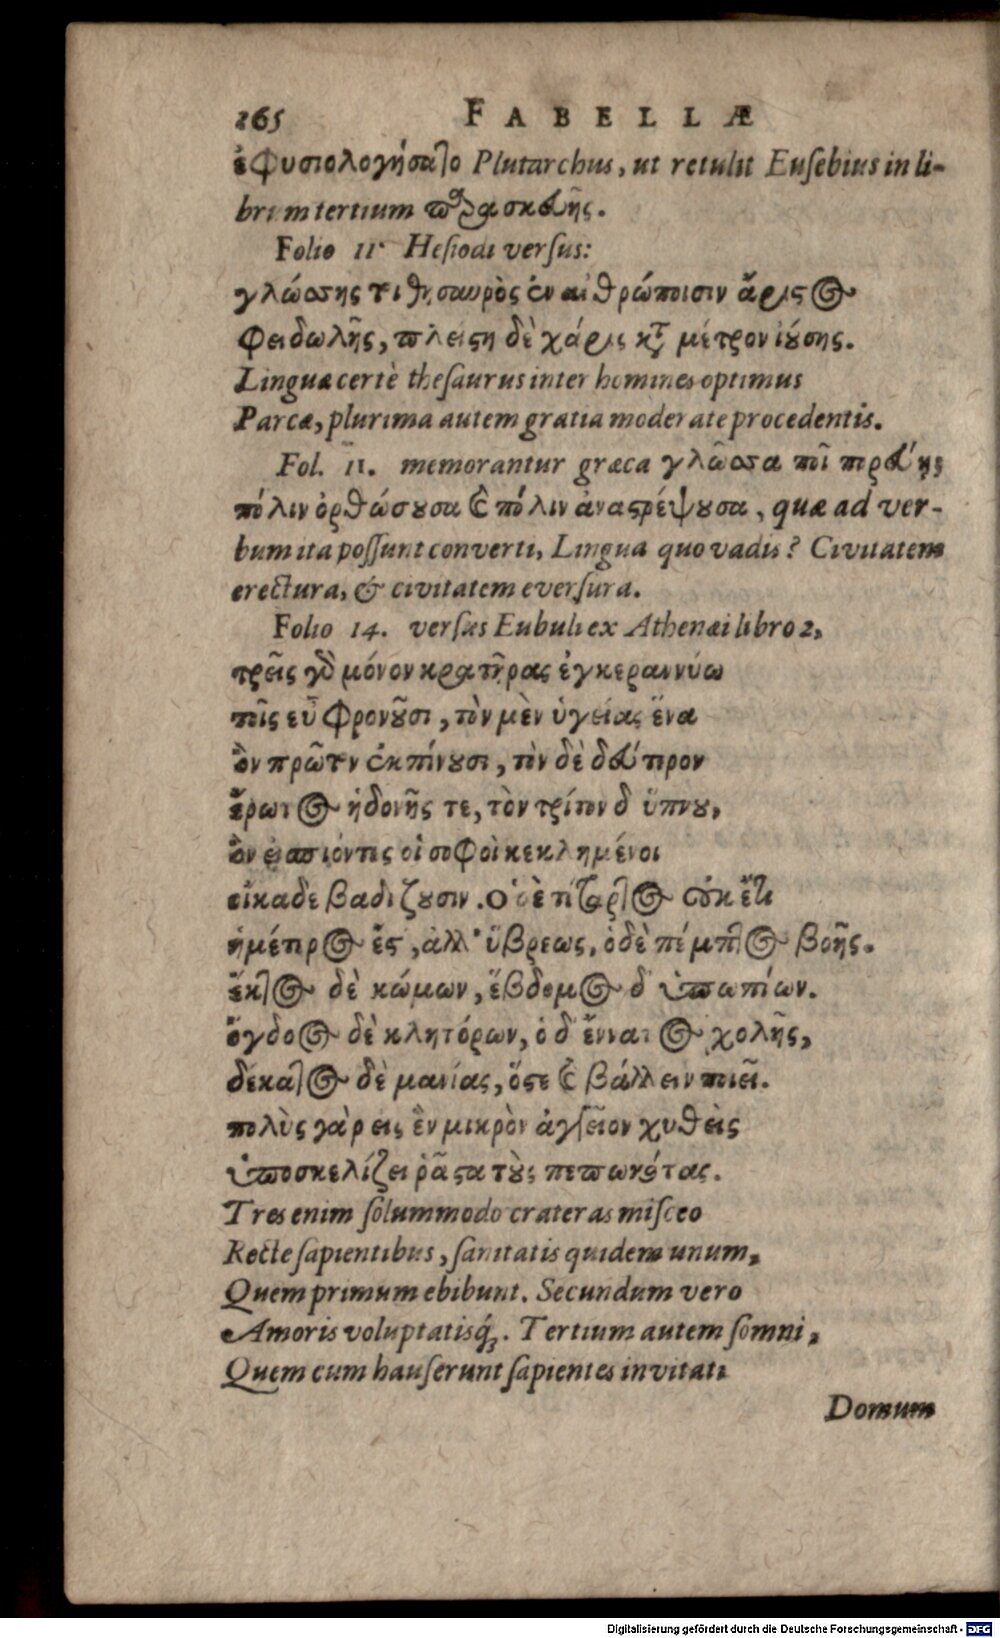 265 FABELLÆ
ἐφυσιολογήσατο Plutarchus, ut retulit Eusebius in li-
brum tertium παρασκευῆς.
Folio 11. Hesiodi versus:
γλώσσης τοι θησαυρὸς ἐν ἀνθρώποισιν ἄριστος
φειδωλῆς, πλείστη δὲ χάρις κτ μέτρον ἰούσης.
Linguæ certè thesaurus inter homines optimus
Parcæ, plurima autem gratia moderate procedentis.
Fol. 11. memorantur græca γλῶσσα ποῖ πορεύῃ;
πόλιν ὀρθώσουσα καὶ πόλιν ἀναστρέψουσα, quæ ad ver-
bum ita possunt converti, Lingua quo vadis? Civitatem
erectura, & civitatem eversura.
Folio 14. versus Eubuli ex Athenæi libro 2,
τρεῖς γὸ μόνον κρατῆρας ἐγκεραννύω
τοῖς εὖ φρονοῦσι, τὸν μὲν ὑγείας ἕνα
ὃν πρῶτον ἐκπίνουσι, τὸν δὲ δεύτερον
ἔρωτος ἡδονῆς τε, τὸν τρίτον δ ὕπνου,
ὃν εἰσπιόντες οἱ σοφοὶ κεκλημένοι
οἴκαδε βαδίζουσιν. Ο δὲ τέταρτος οὐκ ἔτι
ἡμέτερος ἐς, ἀλλ' ὕβρεως, ὁ δὲ πέμπτος βοῆς.
ἕκτος δὲ κώμων, ἕβδομος δ ὑπωπίων.
ὄγδοος δὲ κλητόρων, ὁ δ ἔννατος χολῆς,
δέκατος δὲ μανίας, ὅστε καὶ βάλλειν ποιεῖ.
πολὺς γὰρ εἰς ἓν μικρὸν ἀγγεῖον χυθεὶς
ὑποσκελίζει ῥᾷστα τοὺς πεπωκότας.
Tres enim solummodo crateras misceo
Recte sapientibus, sanitatis quidem unum,
Quem primum ebibunt. Secundum vero
Amoris voluptatisq́;. Tertium autem somni,
Quem cum hauserunt sapientes invitati
Domum
Digitalisierung gefördert durch die Deutsche Forschungsgemeinschaft - DFG